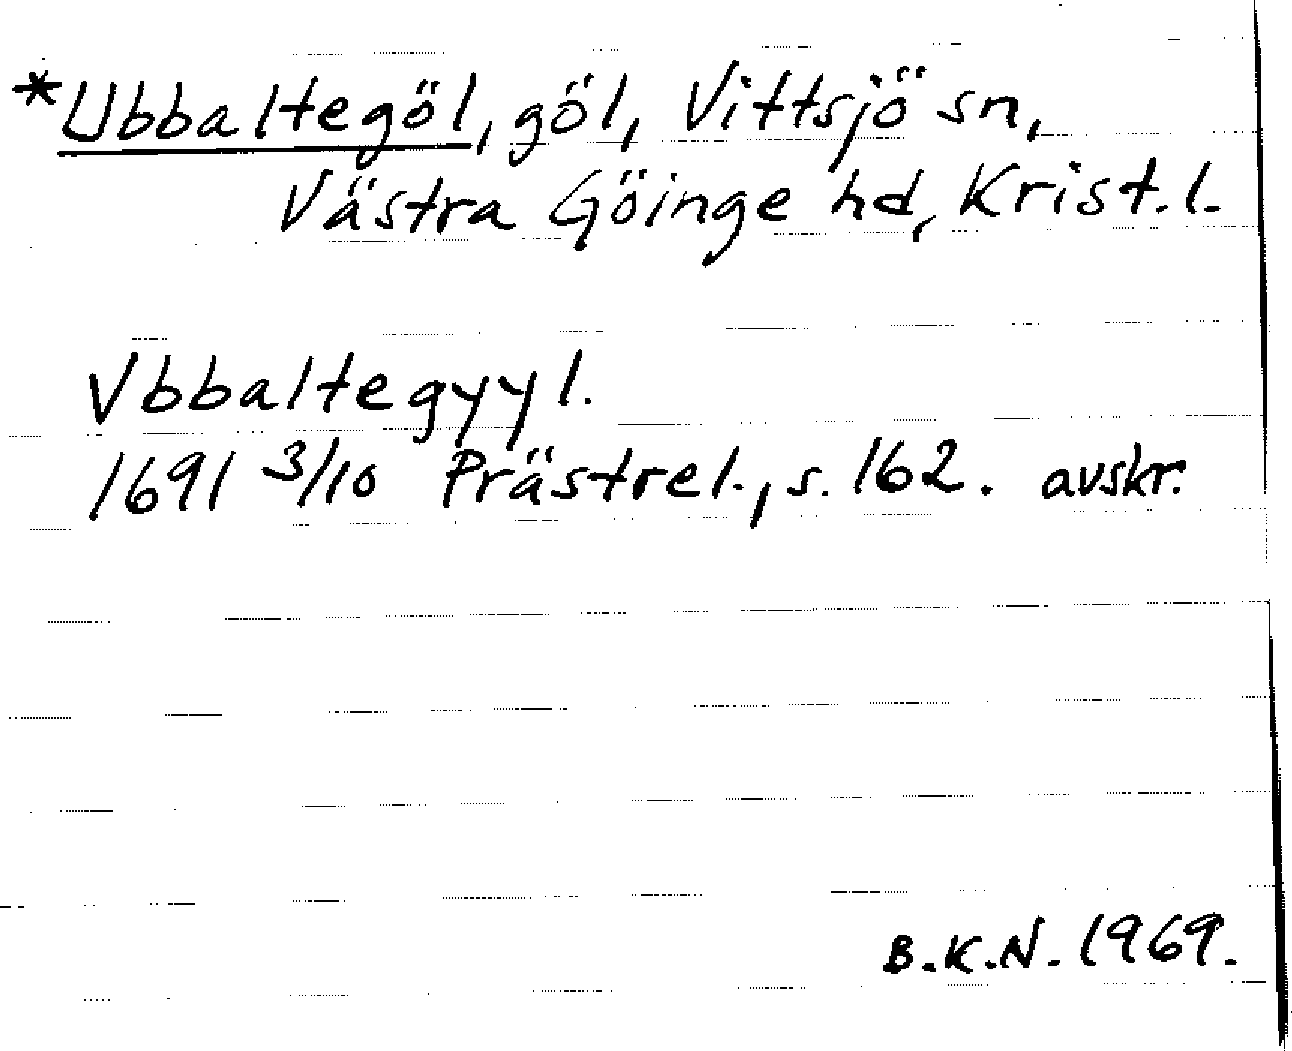 *Ubbaltegöl, göl, Vittsjö sn,
Västra Göinge hd, Krist.l.
Vbbaltegyyl.
1691 3/10 Prästrel., s. 162. avskr.
B.K.N. 1969.